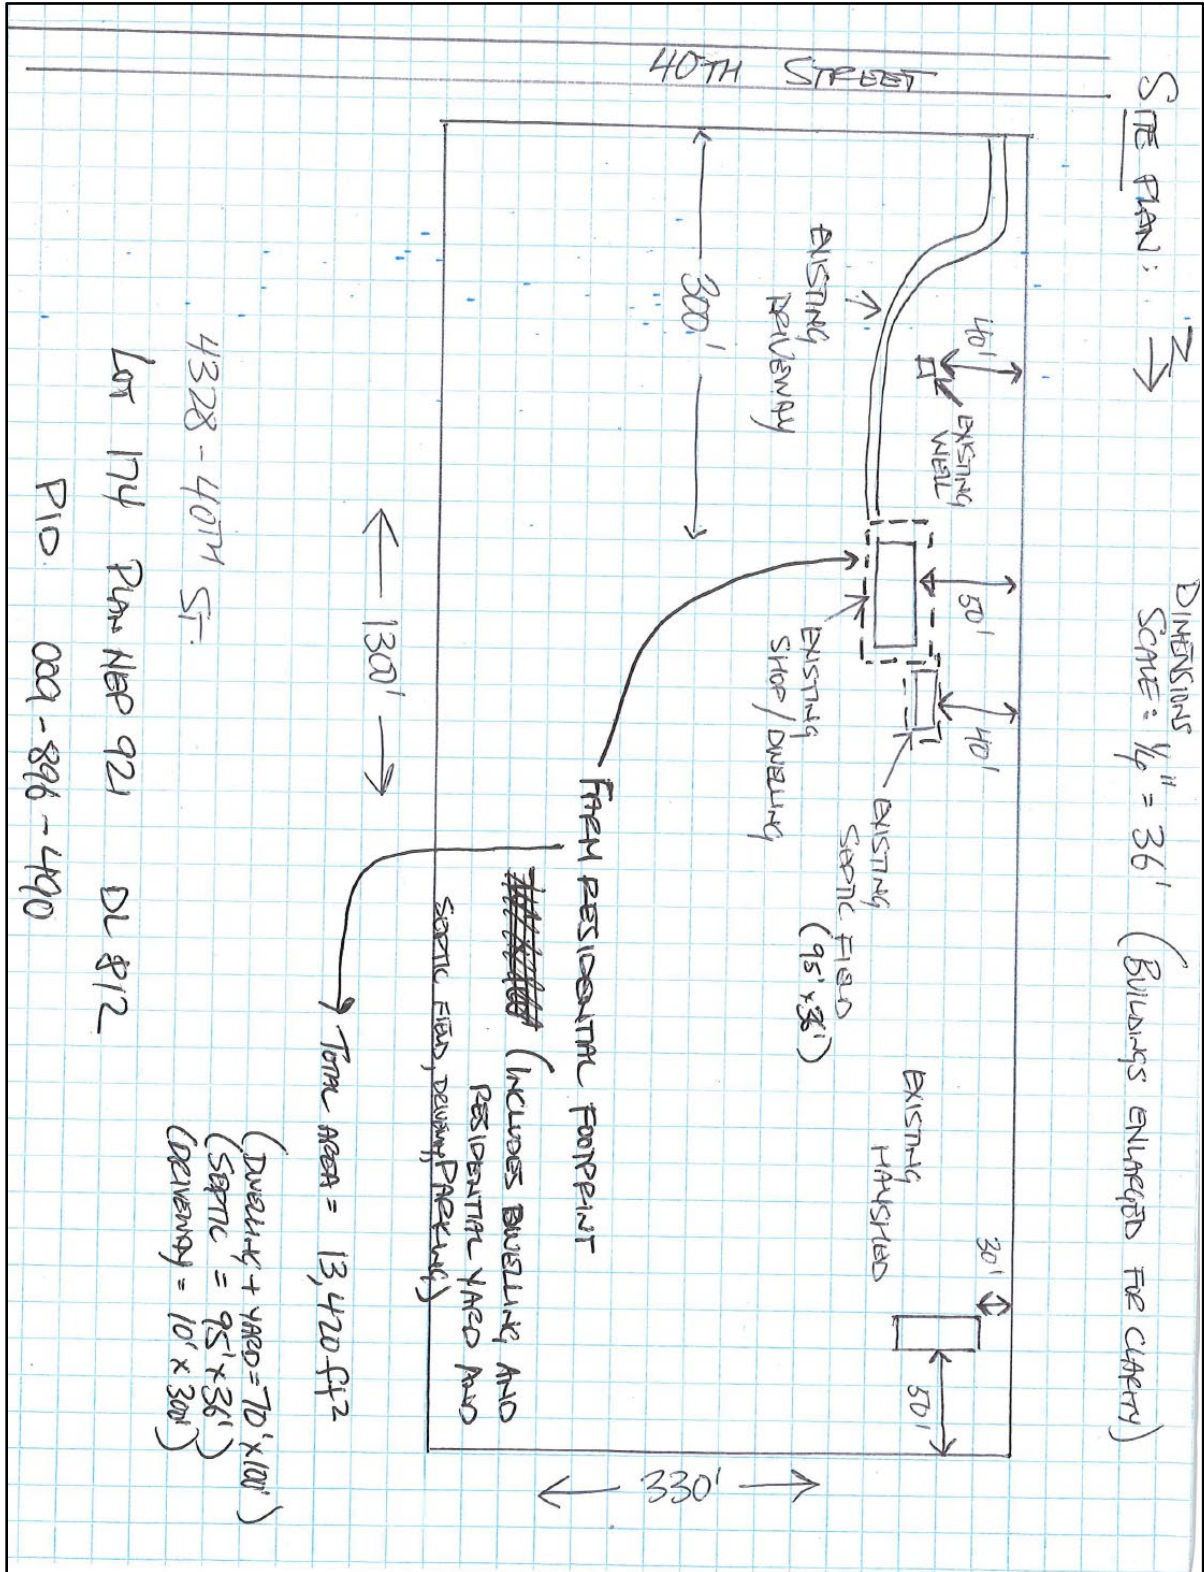 SITE PLAN:
N
DIMENSIONS
SCALE: 1/4" = 36' (BUILDINGS ENLARGED FOR CLARITY)
40TH STREET
40'
EXISTING
WELL
EXISTING
DRIVEWAY
300'
50'
EXISTING
SHOP/DWELLING
40'
EXISTING
SEPTIC FIELD
(95' x 36')
EXISTING
HAYSHED
30'
50'
330'
FARM RESIDENTIAL FOOTPRINT
(INCLUDES DWELLING AND
RESIDENTIAL YARD AND
SEPTIC FIELD, DRIVEWAY, PARKING)
1300'
TOTAL AREA = 13,420 ft2
(DWELLING + YARD = 70' x 100')
(SEPTIC = 95' x 36')
(DRIVEWAY = 10' x 300')
4328 - 40TH ST.
LOT 174 PLAN NEP 921 DL 812
PID 009-896-490